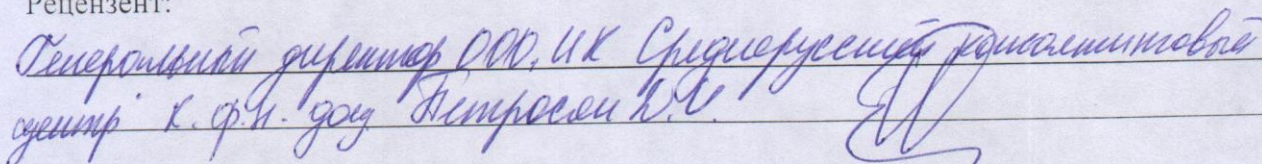 Рецензент:
Генеральный директор ООО "ИК Среднерусский консалтинговый
центр" к.ф.н. доц. Петросян Д.И.